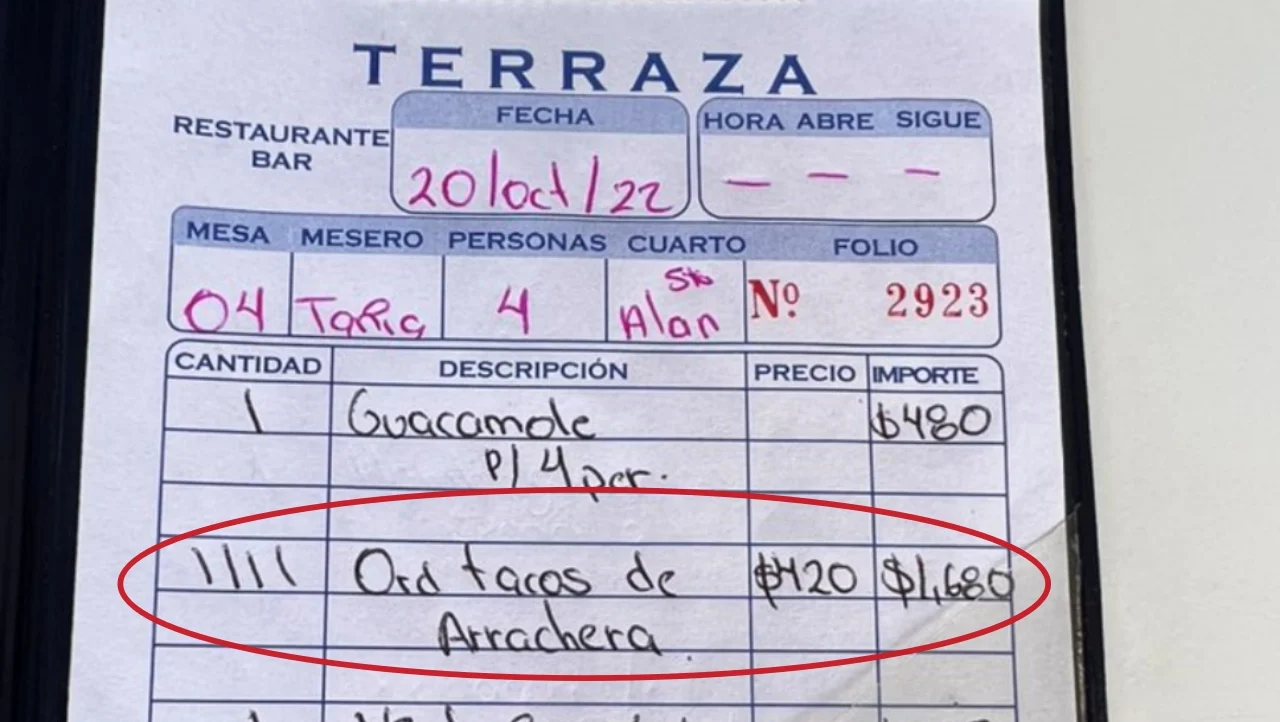 TERRAZA
RESTAURANTE
BAR
FECHA
20/oct/22
HORA ABRE SIGUE
— — —
MESA MESERO PERSONAS CUARTO FOLIO
04 4 Alan Nº 2923
CANTIDAD DESCRIPCIÓN PRECIO IMPORTE
1 Guacamole $480
P/ 4 per.
1111 Ord tacos de $420 $1,680
Arrachera.